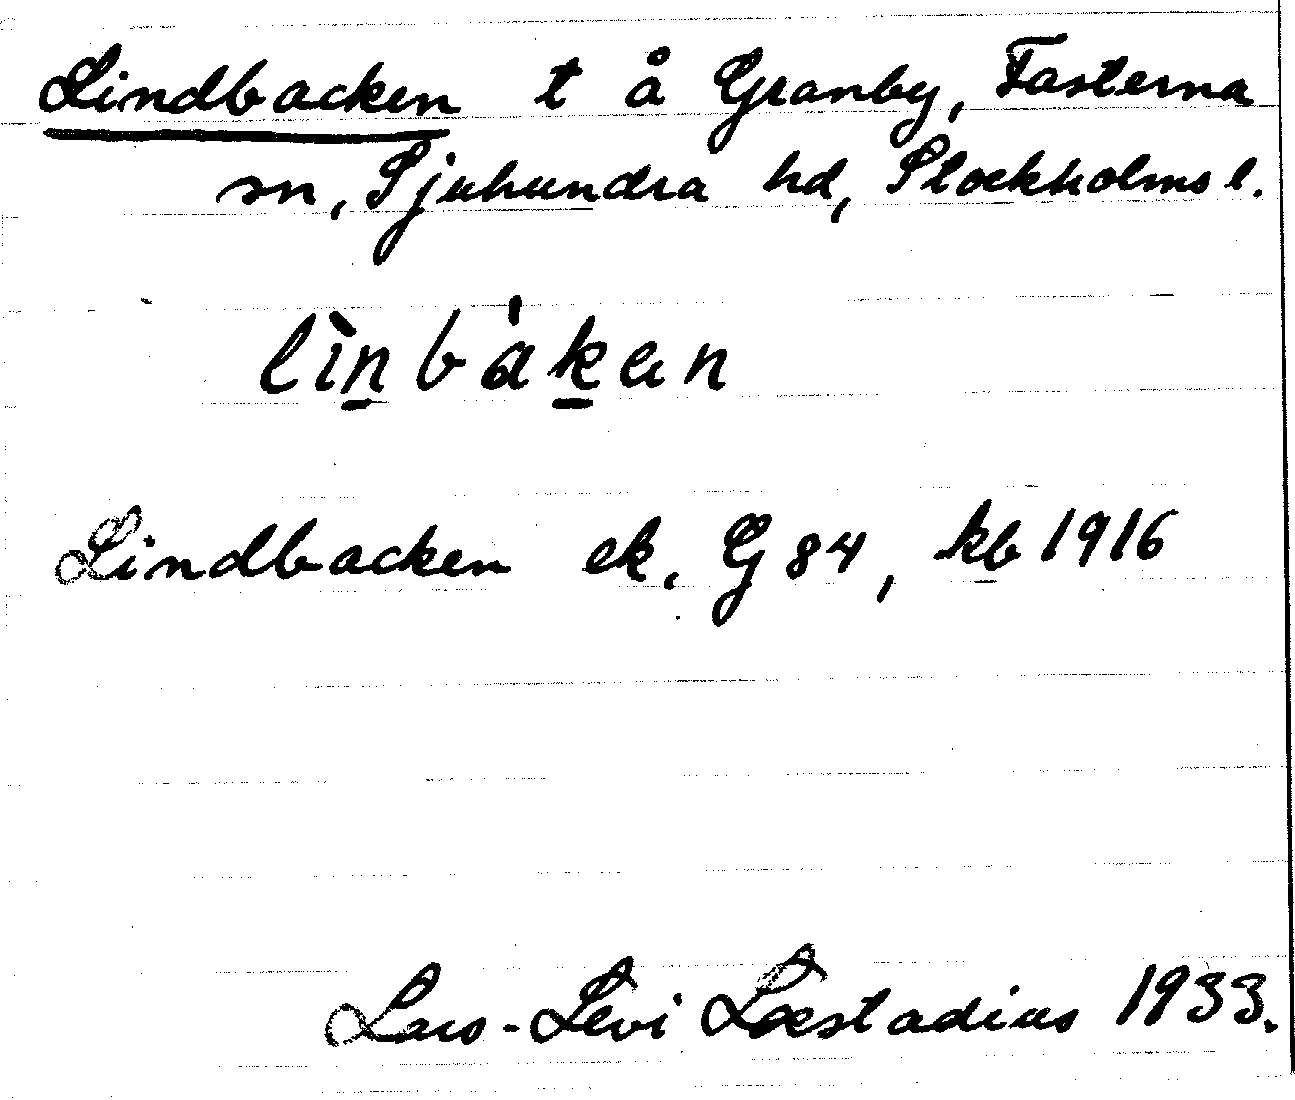 Lindbacken t å Granby, Fasterna
sn, Sjuhundra hd, Stockholms l.
lìn̲bák̲en
Lindbacken ek. G 84, kb 1916
Lars-Levi Læstadius 1933.